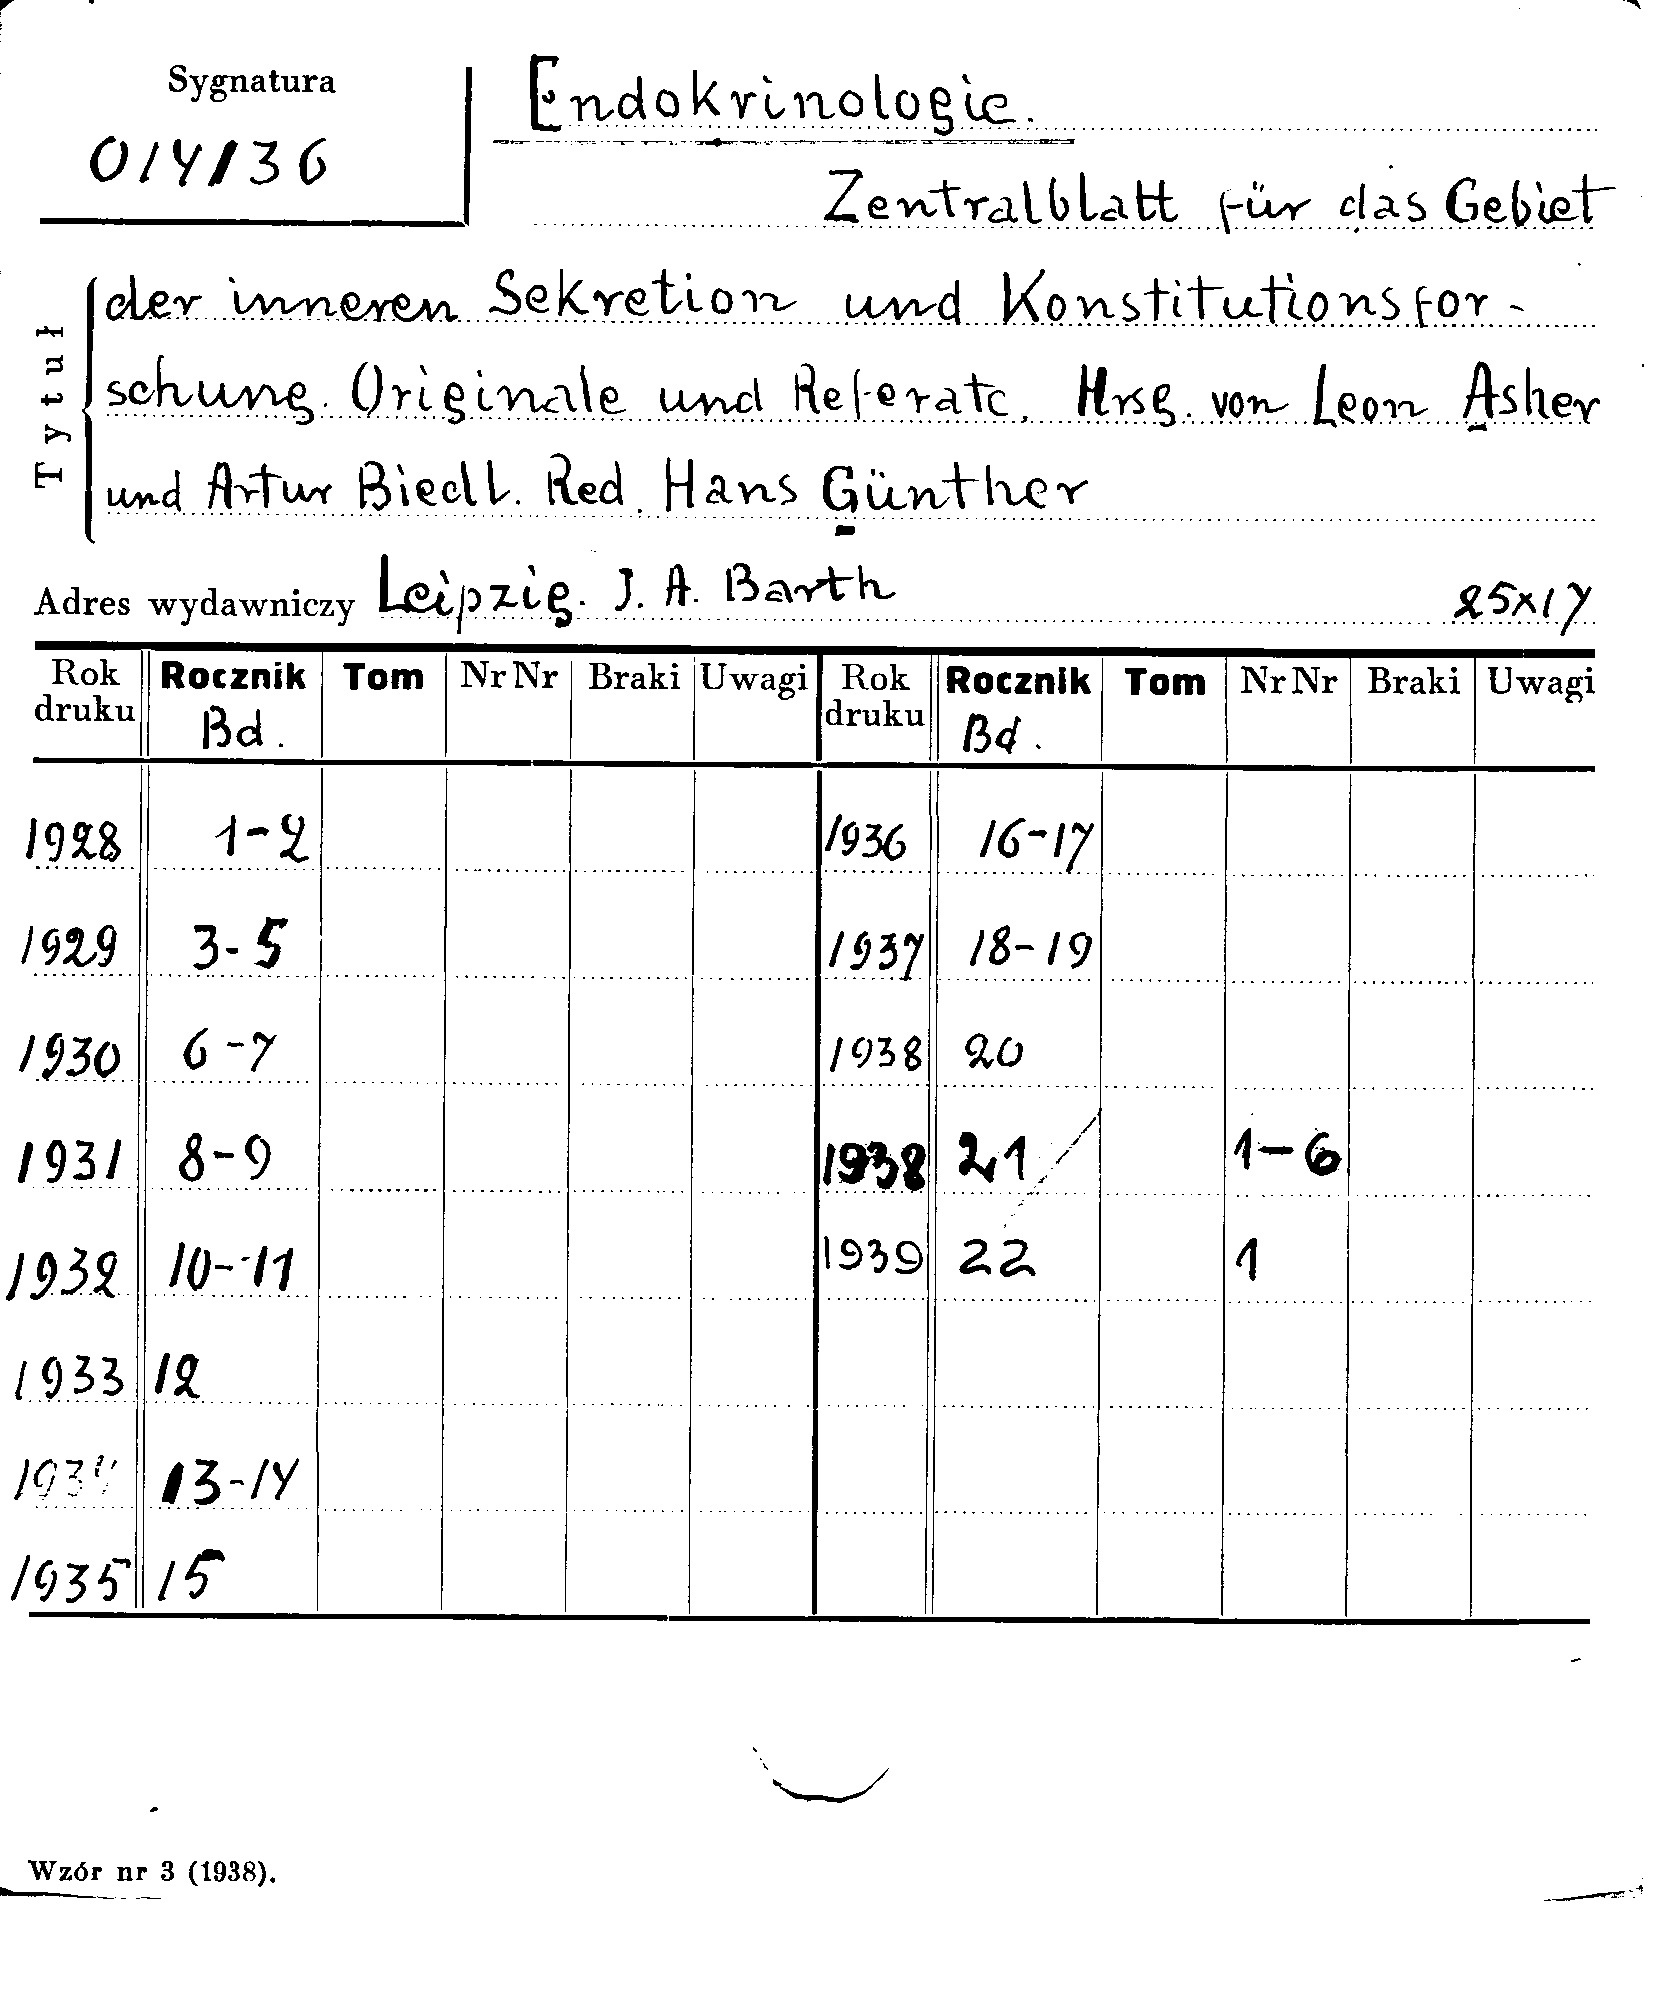 Sygnatura
014136
Endokrinologie.
Zentralblatt für das Gebiet
Tytuł
der inneren Sekretion und Konstitutionsfor-
schung. Originale und Referate. Hrsg. von Leon Asher
und Artur Biedl. Red. Hans Günther
Adres wydawniczy Leipzig. J. A. Barth 25x17
Rok druku Rocznik Tom Nr Nr Braki Uwagi Rok druku Rocznik Tom Nr Nr Braki Uwagi
Bd. Bd.
1928 1-2 1936 16-17
1929 3-5 1937 18-19
1930 6-7 1938 20
1931 8-9 1938 21 1-6
1932 10-11 1939 22 1
1933 12
1934 13-14
1935 15
Wzór nr 3 (1938).